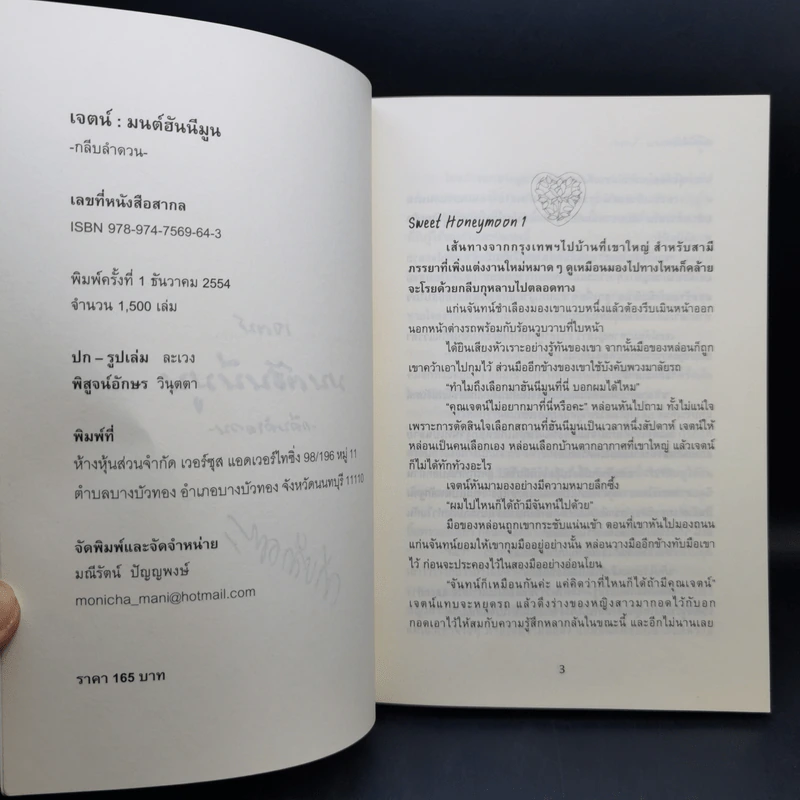 เจตน์ : มนต์ฮันนีมูน
-กลีบลำดวน-
เลขที่หนังสือสากล
ISBN 978-974-7569-64-3
พิมพ์ครั้งที่ 1 ธันวาคม 2554
จำนวน 1,500 เล่ม
ปก – รูปเล่ม ละเวง
พิสูจน์อักษร วินุตตา
พิมพ์ที่
ห้างหุ้นส่วนจำกัด เวอร์ซุส แอดเวอร์ไทซิ่ง 98/196 หมู่ 11
ตำบลบางบัวทอง อำเภอบางบัวทอง จังหวัดนนทบุรี 11110
จัดพิมพ์และจัดจำหน่าย
มณีรัตน์ ปัญญพงษ์
monicha_mani@hotmail.com
ราคา 165 บาท
Sweet Honeymoon 1
เส้นทางจากกรุงเทพฯไปบ้านที่เขาใหญ่ สำหรับสามี
ภรรยาที่เพิ่งแต่งงานใหม่หมาด ๆ ดูเหมือนมองไปทางไหนก็คล้าย
จะโรยด้วยกลีบกุหลาบไปตลอดทาง
แก่นจันทน์ชำเลืองมองเขาแวบหนึ่งแล้วต้องรีบเมินหน้าออก
นอกหน้าต่างรถพร้อมกับร้อนวูบวาบที่ใบหน้า
ได้ยินเสียงหัวเราะอย่างรู้ทันของเขา จากนั้นมือของหล่อนก็ถูก
เขาคว้าเอาไปกุมไว้ ส่วนมืออีกข้างของเขาใช้บังคับพวงมาลัยรถ
“ทำไมถึงเลือกมาฮันนีมูนที่นี่ บอกผมได้ไหม”
“คุณเจตน์ไม่อยากมาที่นี่หรือคะ” หล่อนหันไปถาม ทั้งไม่แน่ใจ
เพราะการตัดสินใจเลือกสถานที่ฮันนีมูนเป็นเวลาหนึ่งสัปดาห์ เจตน์ให้
หล่อนเป็นคนเลือกเอง หล่อนเลือกบ้านตากอากาศที่เขาใหญ่ แล้วเจตน์
ก็ไม่ได้ทักท้วงอะไร
เจตน์หันมามองอย่างมีความหมายลึกซึ้ง
“ผมไปไหนก็ได้ถ้ามีจันทน์ไปด้วย”
มือของหล่อนถูกเขากระชับแน่นเข้า ตอนที่เขาหันไปมองถนน
แก่นจันทน์ยอมให้เขากุมมืออยู่อย่างนั้น หล่อนวางมืออีกข้างทับมือเขา
ไว้ ก่อนจะประคองไว้ในสองมืออย่างอ่อนโยน
“จันทน์ก็เหมือนกันค่ะ แค่คิดว่าที่ไหนก็ได้ถ้ามีคุณเจตน์”
เจตน์แทบจะหยุดรถ แล้วดึงร่างของหญิงสาวมากอดไว้กับอก
กอดเอาไว้ให้สมกับความรู้สึกหลากล้นในขณะนี้ และอีกไม่นานเลย
3